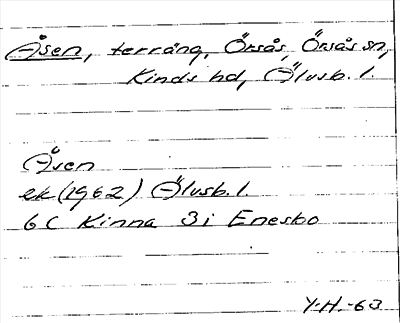 Åsen, terräng, Örsås, Örsås sn,
Kinds hd, Älvsb. l.
Åsen
ek (1962) Älvsb. l.
6C Kinna 3i Enesbo
Y.H.-63